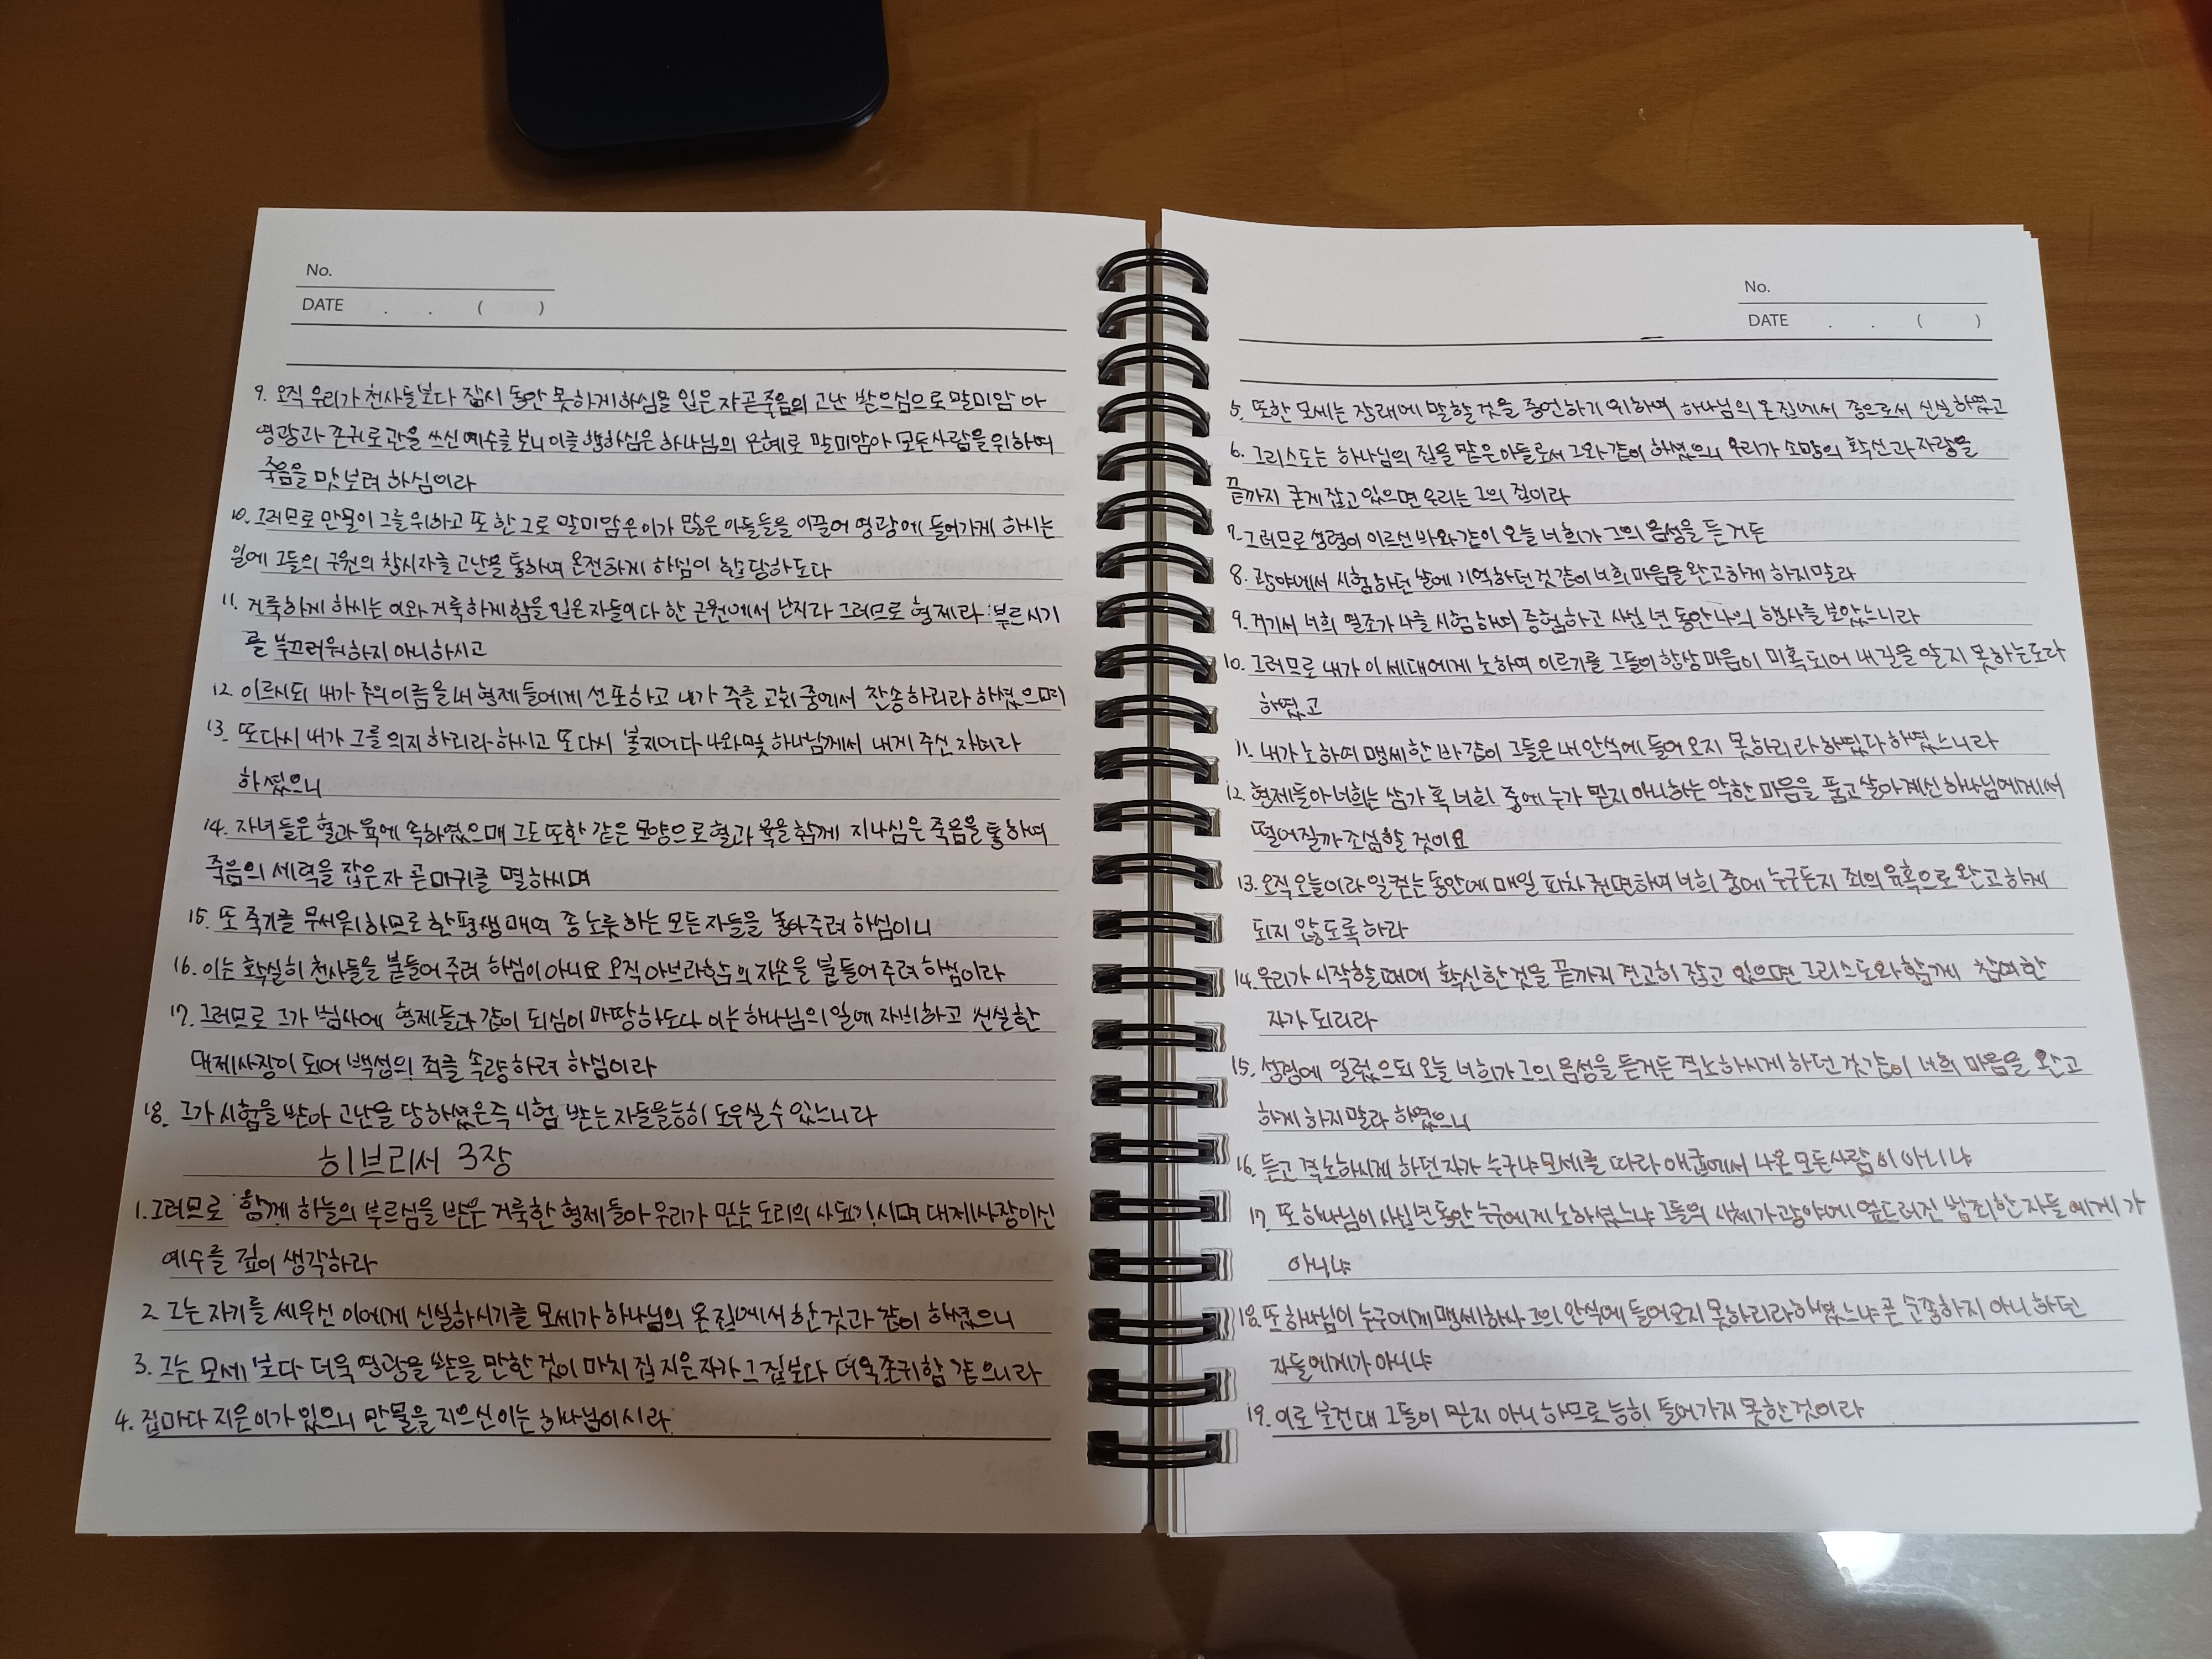 No.
DATE . . ( )
9. 오직 우리가 천사들보다 잠시 동안 못하게 하심을 입은 자 곧 죽음의 고난 받으심으로 말미암 아
영광과 존귀로 관을 쓰신 예수를 보니 이를 행하심은 하나님의 은혜로 말미암아 모든 사람을 위하여
죽음을 맛보려 하심이라
10. 그러므로 만물이 그를 위하고 또한 그로 말미암은 이가 많은 아들들을 이끌어 영광에 들어가게 하시는
일에 그들의 구원의 창시자를 고난을 통하여 온전하게 하심이 합당하도다
11. 거룩하게 하시는 이와 거룩하게 함을 입은 자들이 다 한 근원에서 난지라 그러므로 형제라 부르시기
를 부끄러워하지 아니하시고
12. 이르시되 내가 주의 이름을 내 형제들에게 선포하고 내가 주를 교회 중에서 찬송하리라 하셨으며
13. 또다시 내가 그를 의지하리라 하시고 또다시 볼지어다 나와 및 하나님께서 내게 주신 자녀라
하셨으니
14. 자녀들은 혈과 육에 속하였으매 그도 또한 같은 모양으로 혈과 육을 함께 지니심은 죽음을 통하여
죽음의 세력을 잡은 자 곧 마귀를 멸하시며
15. 또 죽기를 무서워하므로 한평생 매여 종 노릇 하는 모든 자들을 놓아 주려 하심이니
16. 이는 확실히 천사들을 붙들어 주려 하심이 아니요 오직 아브라함의 자손을 붙들어 주려 하심이라
17. 그러므로 그가 범사에 형제들과 같이 되심이 마땅하도다 이는 하나님의 일에 자비하고 신실한
대제사장이 되어 백성의 죄를 속량하려 하심이라
18. 그가 시험을 받아 고난을 당하셨은즉 시험 받는 자들을 능히 도우실 수 있느니라
히브리서 3장
1. 그러므로 함께 하늘의 부르심을 받은 거룩한 형제들아 우리가 믿는 도리의 사도가시며 대제사장이신
예수를 깊이 생각하라
2. 그는 자기를 세우신 이에게 신실하시기를 모세가 하나님의 온 집에서 한 것과 같이 하셨으니
3. 그는 모세보다 더욱 영광을 받을 만한 것이 마치 집 지은 자가 그 집보다 더욱 존귀함 같으니라
4. 집마다 지은 이가 있으니 만물을 지으신 이는 하나님이시라
No.
DATE . . ( )
5. 또한 모세는 장래에 말할 것을 증언하기 위하여 하나님의 온 집에서 종으로서 신실하였고
6. 그리스도는 하나님의 집을 맡은 아들로서 그와 같이 하셨으니 우리가 소망의 확신과 자랑을
끝까지 굳게 잡고 있으면 우리는 그의 집이라
7. 그러므로 성령이 이르신 바와 같이 오늘 너희가 그의 음성을 듣거든
8. 광야에서 시험하던 날에 거역하던 것 같이 너희 마음을 완고하게 하지 말라
9. 거기서 너희 열조가 나를 시험하여 증험하고 사십 년 동안 나의 행사를 보았느니라
10. 그러므로 내가 이 세대에게 노하여 이르기를 그들이 항상 마음이 미혹되어 내 길을 알지 못하는도다
하였고
11. 내가 노하여 맹세한 바 같이 그들은 내 안식에 들어오지 못하리라 하였다 하였느니라
12. 형제들아 너희는 삼가 혹 너희 중에 누가 믿지 아니하는 악한 마음을 품고 살아 계신 하나님에게서
떨어질까 조심할 것이요
13. 오직 오늘이라 일컫는 동안에 매일 피차 권면하여 너희 중에 누구든지 죄의 유혹으로 완고하게
되지 않도록 하라
14. 우리가 시작할 때에 확신한 것을 끝까지 견고히 잡고 있으면 그리스도와 함께 참여한
자가 되리라
15. 성경에 일렀으되 오늘 너희가 그의 음성을 듣거든 격노하시게 하던 것 같이 너희 마음을 완고
하게 하지 말라 하였으니
16. 듣고 격노하시게 하던 자가 누구냐 모세를 따라 애굽에서 나온 모든 사람이 아니냐
17. 또 하나님이 사십 년 동안 누구에게 노하셨느냐 그들의 시체가 광야에 엎드러진 범죄한 자들에게가
아니냐
18. 또 하나님이 누구에게 맹세하사 그의 안식에 들어오지 못하리라 하셨느냐 곧 순종하지 아니하던
자들에게가 아니냐
19. 이로 보건대 그들이 믿지 아니하므로 능히 들어가지 못한 것이라